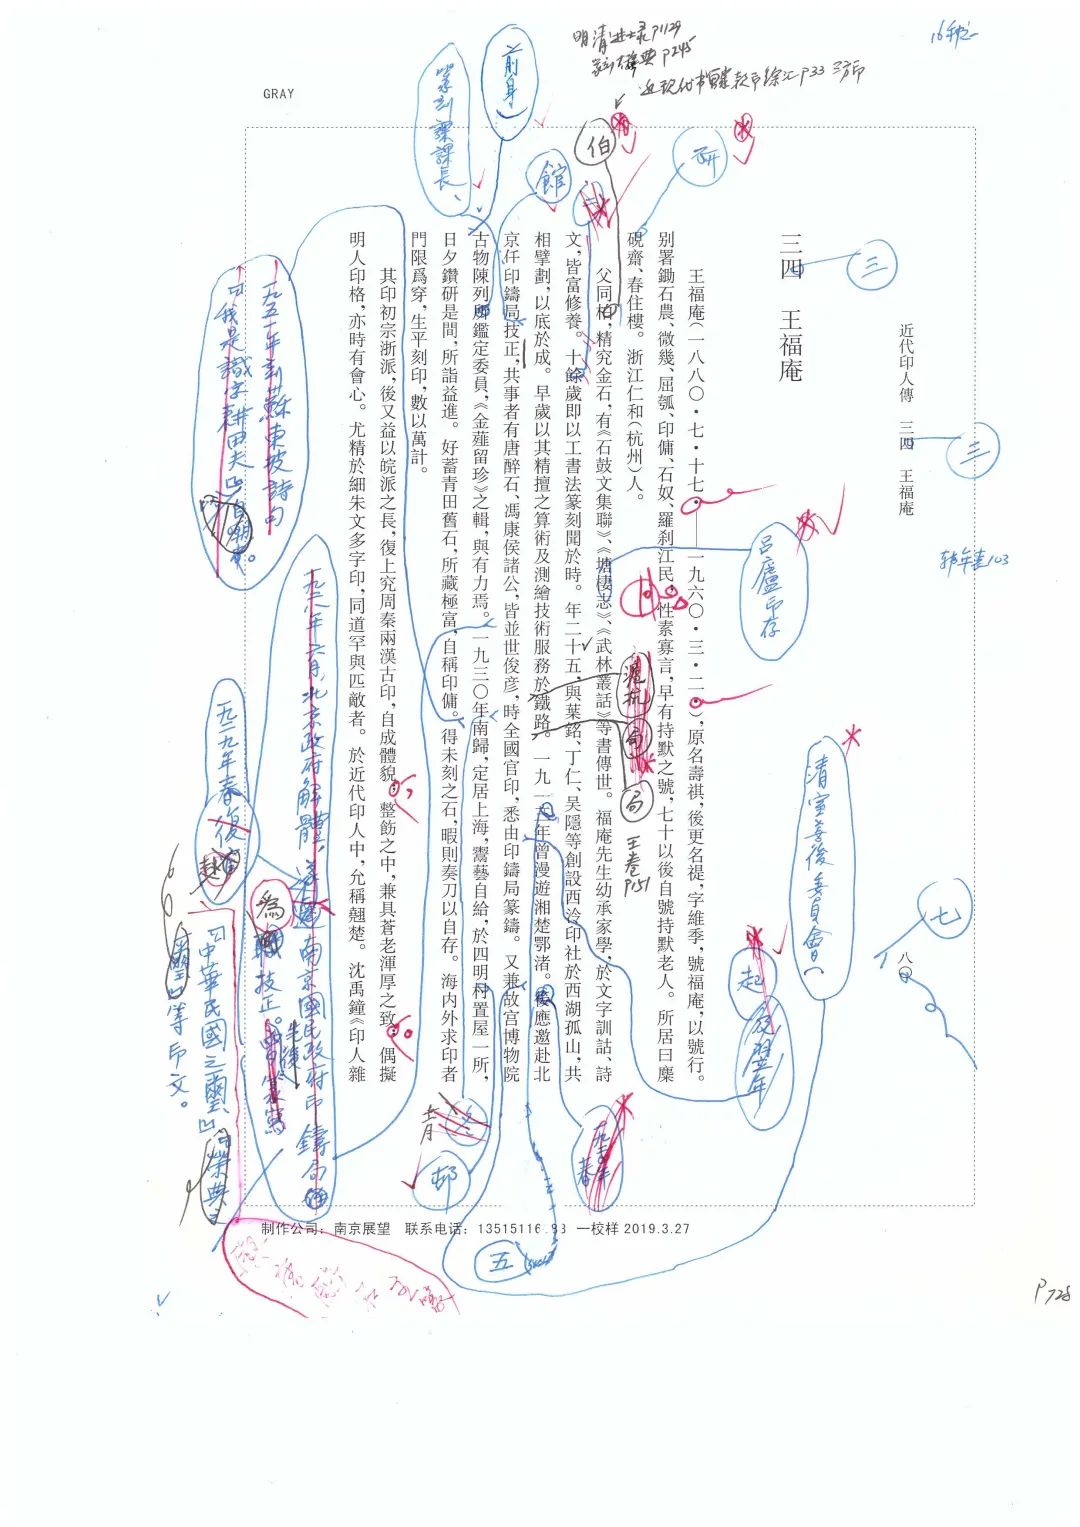 GRAY
近代印人傳　三四　王福庵
三四　王福庵
王福庵（一八八〇·七·十七——一九六〇·三·二），原名壽祺，後更名禔，字維季，號福庵，以號行。
别署鋤石農、微幾、屈瓠、印傭、石奴、羅刹江民，性素寡言，早有持默之號，七十以後自號持默老人。所居曰麋
硯齋、春住樓。浙江仁和（杭州）人。
父同，精究金石，有《石鼓文集聯》、《塘棲志》、《武林叢話》等書傳世。福庵先生幼承家學，於文字訓詁、詩
文，皆富修養。十餘歲即以工書法篆刻聞於時。年二十五，與葉銘、丁仁、吴隱等創設西泠印社於西湖孤山，共
相擘劃，以底於成。早歲以其精擅之算術及測繪技術服務於鐵路。一九一年曾漫遊湘楚鄂渚。後應邀赴北
京任印鑄局技正，共事者有唐醉石、馮康侯諸公，皆並世俊彦，時全國官印，悉由印鑄局篆鑄。又兼故宫博物院
古物陳列所鑑定委員，《金薤留珍》之輯，與有力焉。一九三〇年南歸，定居上海，鬻藝自給，於四明村置屋一所，
日夕鑽研是間，所詣益進。好蓄青田舊石，所藏極富，自稱印傭。得未刻之石，暇則奏刀以自存。海内外求印者
門限爲穿，生平刻印，數以萬計。
其印初宗浙派，後又益以皖派之長，復上究周秦兩漢古印，自成體貌，整飭之中，兼具蒼老渾厚之致。偶擬
明人印格，亦時有會心。尤精於細朱文多字印，同道罕與匹敵者。於近代印人中，允稱翹楚。沈禹鐘《印人雜
八〇
明清进士录P1129
P245
近现代书画家款印综汇P33
篆刻課課長、
（前身）
館
伯
研
三
三
吕廬印存
滬杭
局
局
王卷
P151
清室善後委員會（
七
起
翌年
一九五一年刻蘇東坡詩句
『我是識字耕田夫』自嘲。
一九二八年六月，北京政府解體，
南京國民政府印鑄局
爲
技正。
先後
一九二九年春復
『中華民國之璽』、『榮典之
璽』等印文。
十月
邨
五
P728
制作公司：南京展望　联系电话：13515116.93　一校样 2019.3.27